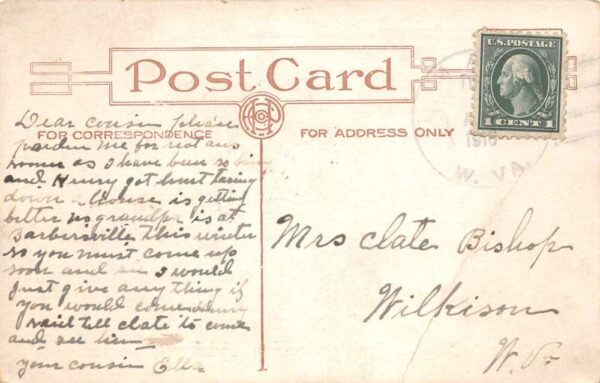 Post Card
U.S. POSTAGE
1 CENT 1
1916
W. VA
FOR CORRESPONDENCE
FOR ADDRESS ONLY
Dear cousin please
parden me for not ans
sooner as I have been so busy
and Henry got hurt taring
down a house is getting
better us grandpa is at
Barbersville this winter
so you must come up
soon and see I would
Just give any thing if
you would come Henry
said tell clate to come
and see him
your cousin Ella
Mrs Clate Bishop
Wilkison
W. Va